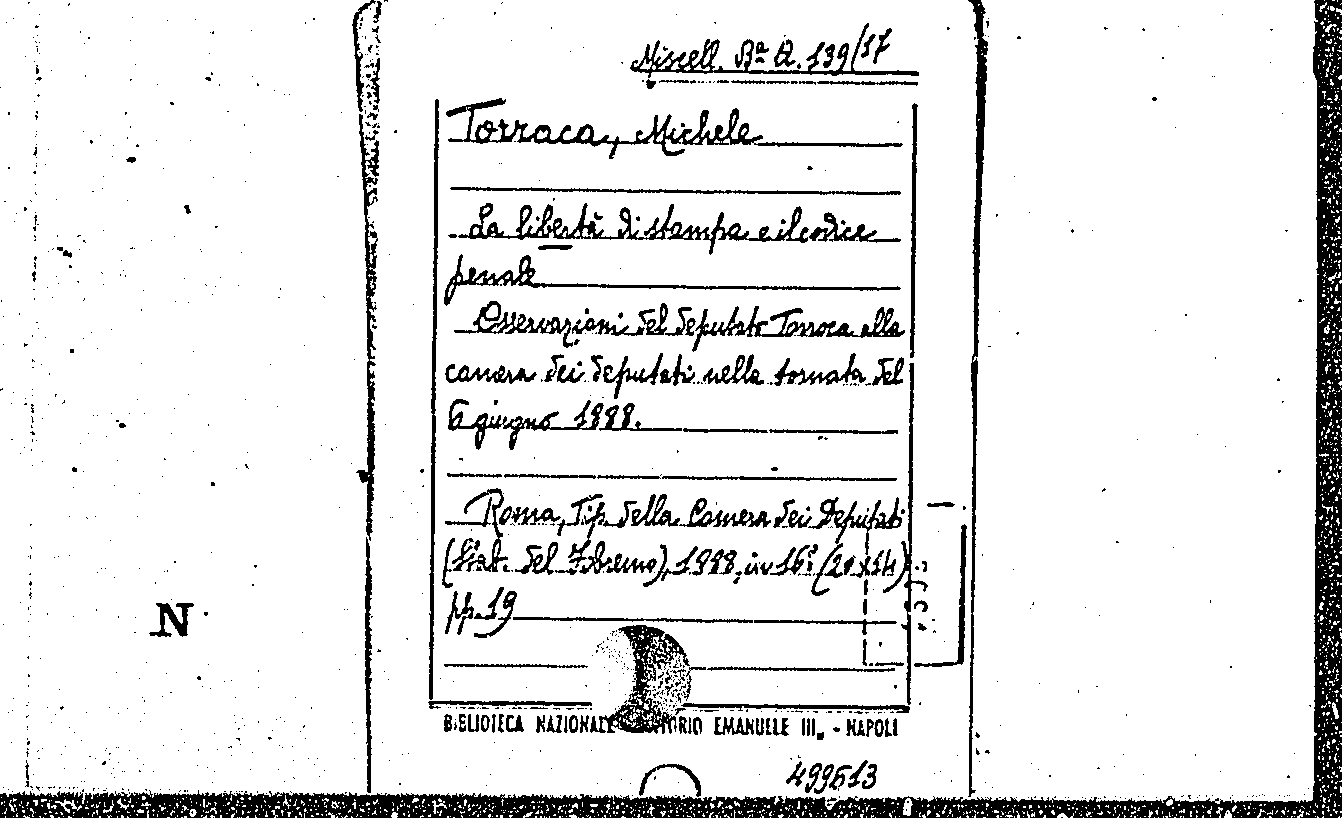 Miscell. Bª Q. 139/17
Torraca, Michele
La libertà di stampa e il codice
penale
Osservazioni del deputato Torraca alla
camera dei deputati nella tornata del
6 giugno 1888.
Roma, Tip. della Camera dei Deputati
(Stab. del Fibreno), 1888, in 16º (20x14)
pp. 19
N
BIBLIOTECA NAZIONALE EMANUELE III, - NAPOLI
499613